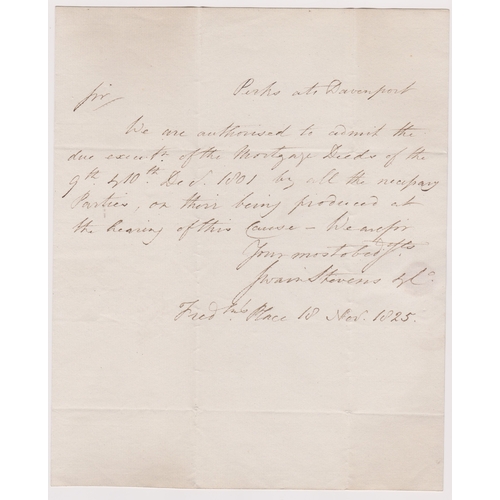 Perks ats Davenport
Sir/
We are authorised to admit the
due execut.n of the Mortgage Deeds of the
9th & 10th Decr. 1801 by all the necessary
Parties, on their being produced at
the hearing of this Cause – We are Sir
Your most obedt. Sts.
Swain Stevens & Co.
Fredks. Place 18 Novr. 1825.